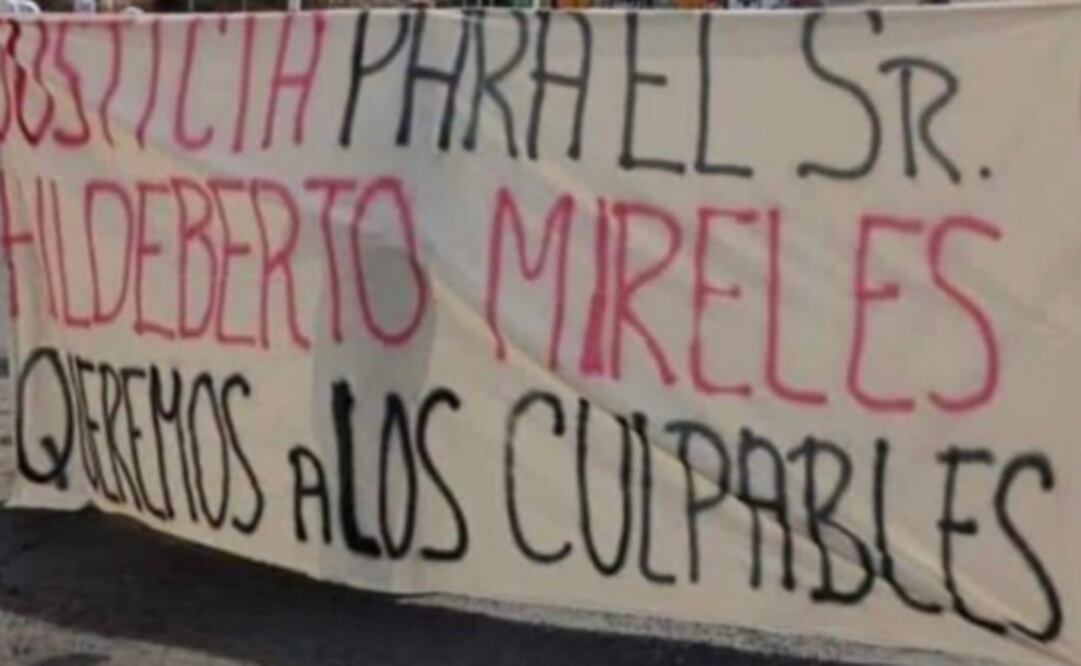 JUSTICIA PARA EL SR.
HILDEBERTO MIRELES
QUEREMOS A LOS CULPABLES